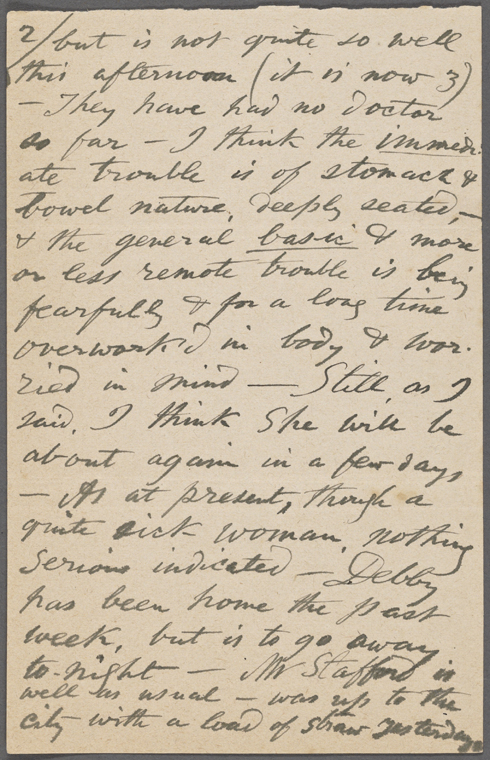 2/ but is not quite so well
this afternoon (it is now 3)
— They have had no doctor
so far — I think the immedi-
ate trouble is of stomach &
bowel nature, deeply seated, —
& the general basic & more
or less remote trouble is being
fearfully & for a long time
overwork'd in body & wor-
ried in mind — Still, as I
said, I think She will be
about again in a few days
— As at present, though a
quite sick woman, nothing
serious indicated — Debby
has been home the past
week, but is to go away
to-night — Mr Stafford is
well as usual — was up to the
city with a load of straw yesterday